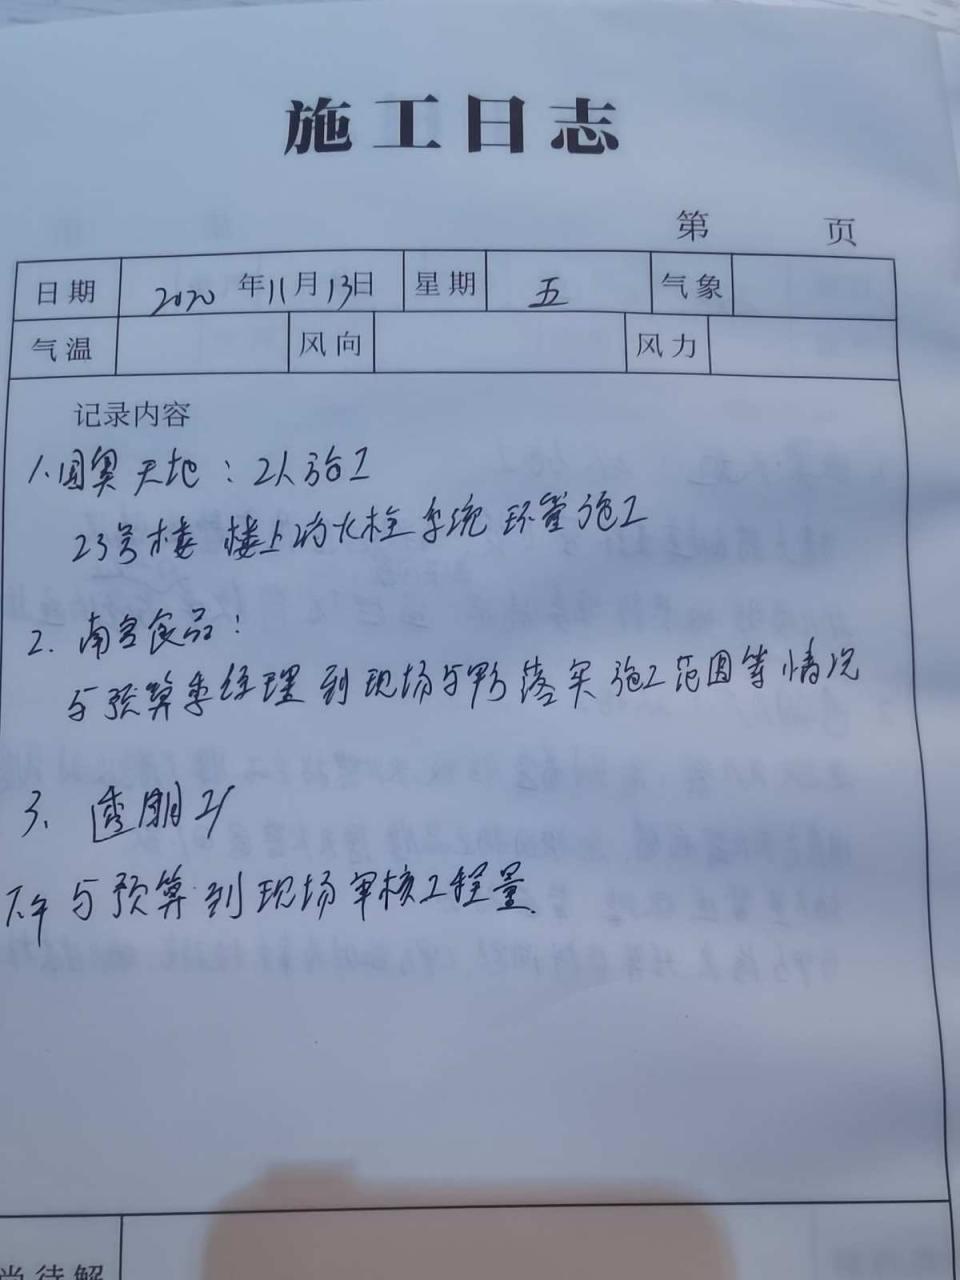 施工日志
第 页
日期 2020年11月13日 星期 五 气象
气温 风向 风力
记录内容
1、国奥天地：2人施工
23号楼 楼上消火栓系统环管施工
2. 南宫食品：
与预算季经理到现场与甲方落实施工范围等情况
3、透明
下午与预算到现场审核工程量.
尚待解